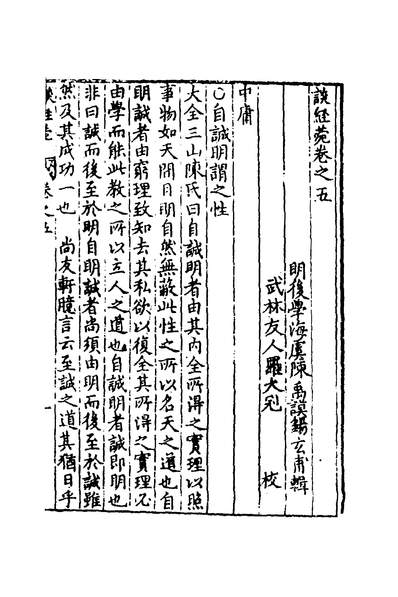 談經菀卷之五
明後學海虞陳禹謨錫玄甫輯
武林友人羅大冠校
中庸
○自誠明謂之性
大全三山陳氏曰自誠明者由其內全所得之實理以照
事物如天開日明自然無蔽此性之所以名天之道也自
明誠者由窮理致知去其私欲以復全其所得之實理必
由學而能此教之所以立人之道也自誠明者誠即明也
非曰誠而後至於明自明誠者尚須由明而後至於誠雖
然及其成功一也 尚友軒臆言云至誠之道其猶日乎
談經菀 卷之五 一